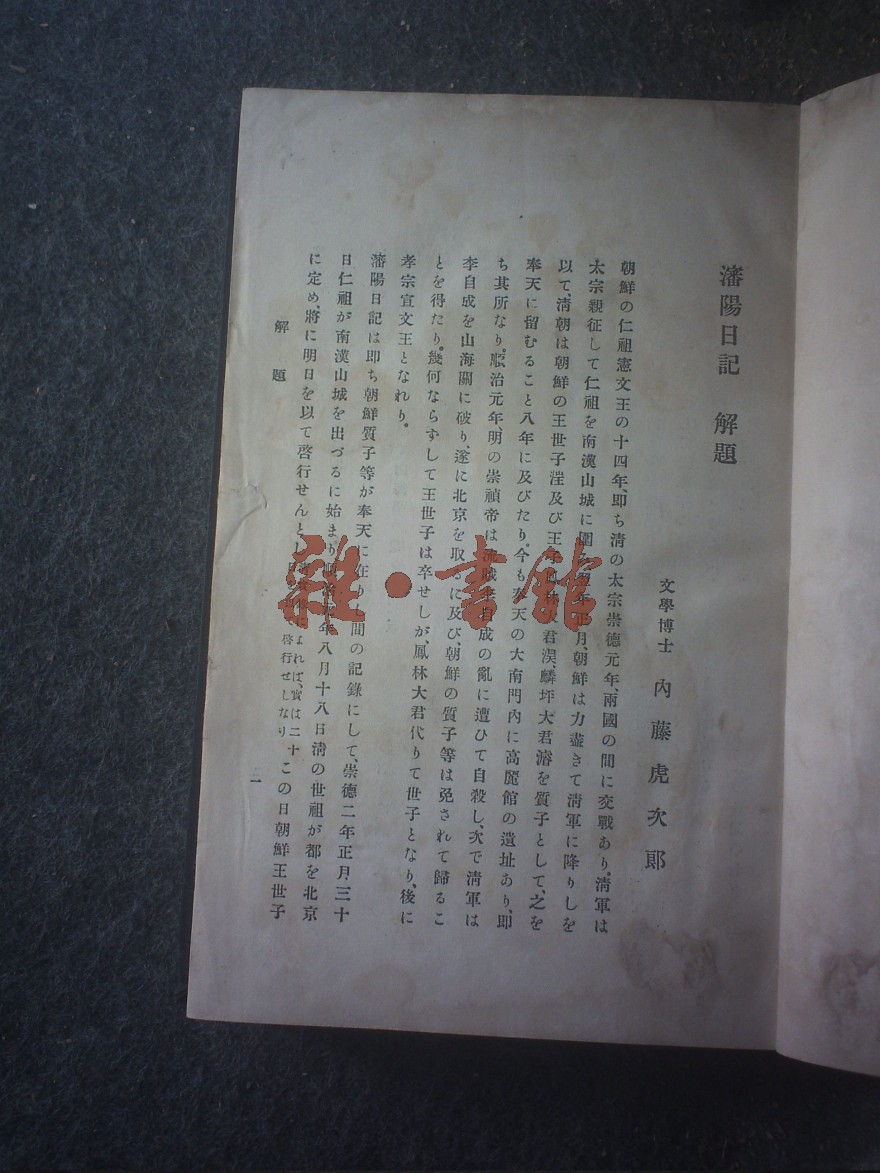 瀋陽日記　解題
文學博士　內藤虎次郎
朝鮮の仁祖憲文王の十四年、即ち淸の太宗崇德元年、兩國の間に交戰あり。淸軍は
太宗親征して仁祖を南漢山城に圍み、年正月、朝鮮は力盡きて淸軍に降りしを
以て、淸朝は朝鮮の王世子𣳫及び王君淏、麟坪大君㴭を質子として、之を
奉天に留むること八年に及びたり。今も奉天の大南門內に高麗館の遺址あり、即
ち其所なり。順治元年、明の崇禎帝は流賊李自成の亂に遭ひて自殺し、次で淸軍は
李自成を山海關に破り、遂に北京を取るに及び、朝鮮の質子等は免されて歸るこ
とを得たり。幾何ならずして王世子は卒せしが、鳳林大君代りて世子となり、後に
孝宗宣文王となれり。
瀋陽日記は即ち朝鮮質子等が奉天に在りし間の記錄にして、崇德二年正月三十
日仁祖が南漢山城を出づるに始まり、年八月十八日淸の世祖が都を北京
に定め、將に明日を以て啓行せんとし よれば、實は二十 啓行せしなり この日朝鮮王世子
解題
一
雜·書館